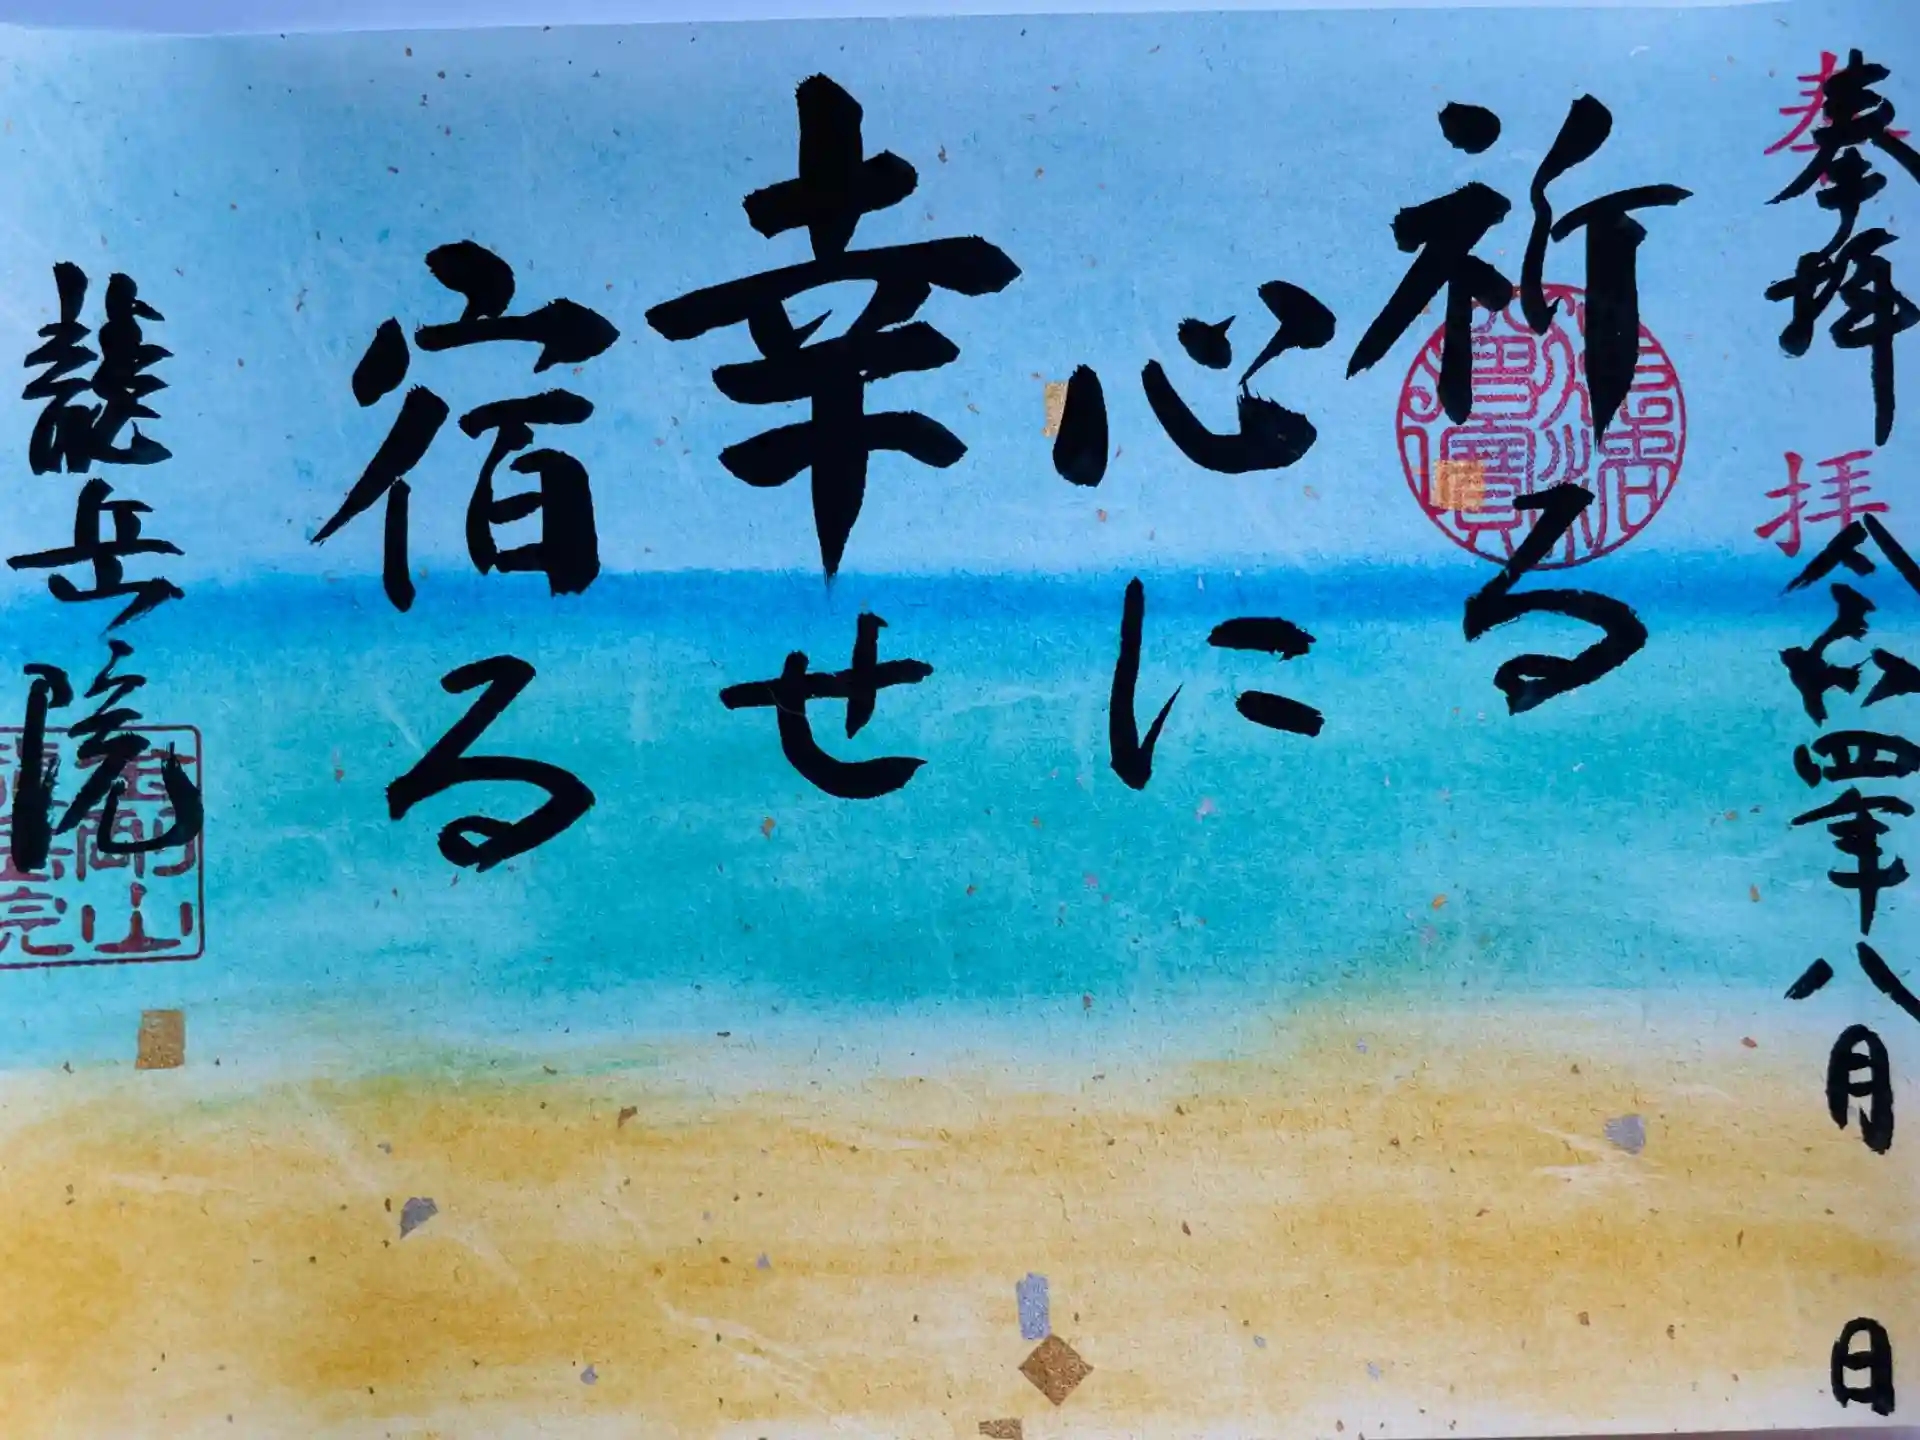 奉拝
奉拝
令和四年八月 日
祈る
心に
幸せ
宿る
龍岳院
金剛山